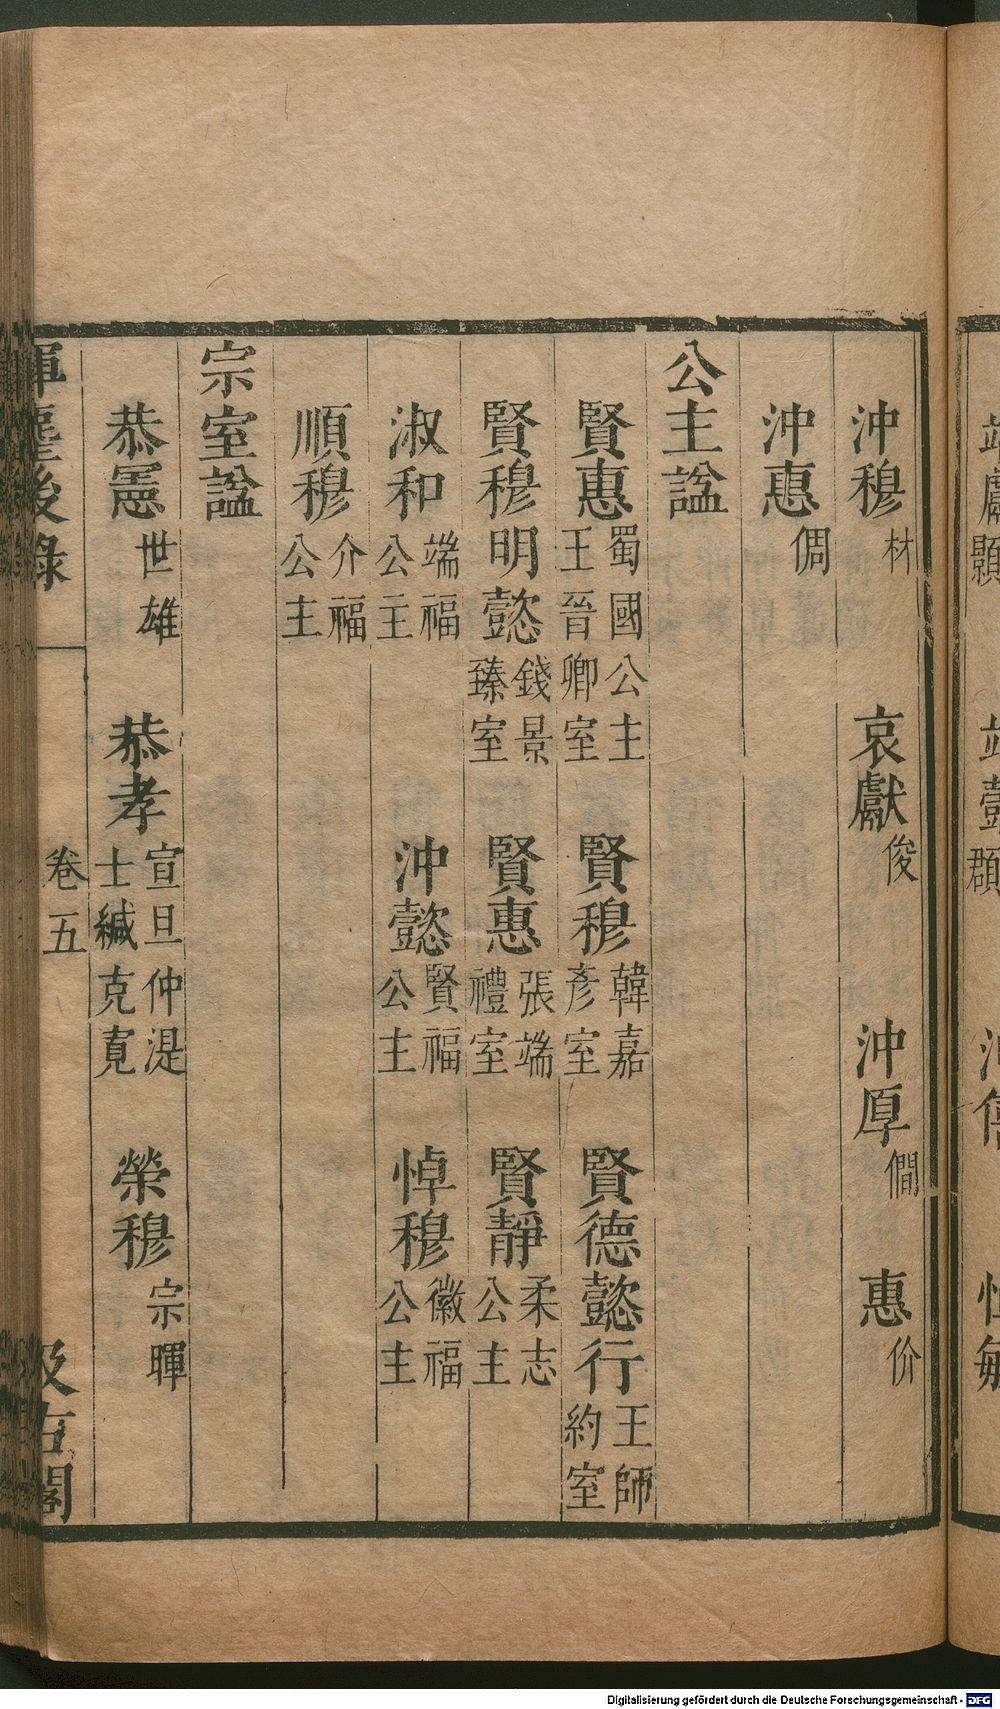 沖穆材 哀獻俊 沖厚僩 惠价
沖惠倜
公主諡
賢惠蜀國公主王晉卿室 賢穆韓嘉彥室 賢德懿行王師約室
賢穆明懿錢景臻室 賢惠張端禮室 賢靜柔志公主
淑和端福公主 沖懿賢福公主 悼穆徽福公主
順穆介福公主
宗室諡
恭憲世雄 恭孝宣旦仲湜士緘克寬 榮穆宗暉
後錄 卷五 汲古閣
Digitalisierung gefördert durch die Deutsche Forschungsgemeinschaft - DFG